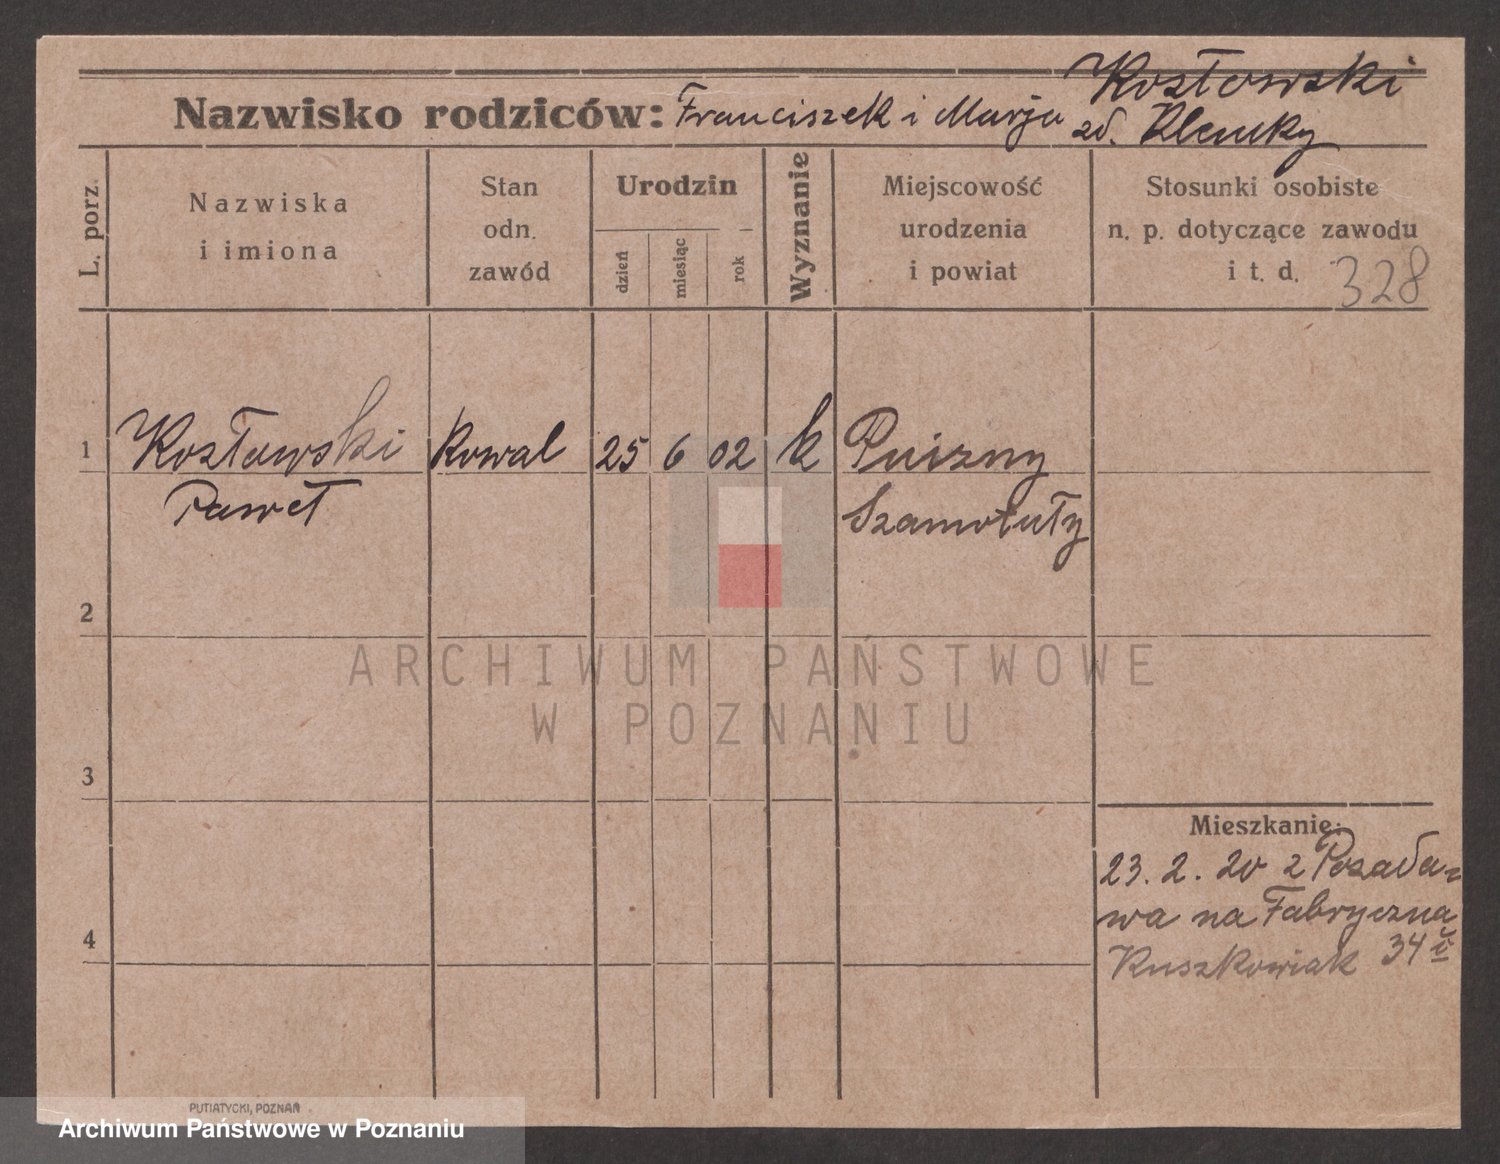 Kosłowski
Nazwisko rodziców: Franciszek i Marja zd. Klemky
L. porz.
Nazwiska
i imiona
Stan
odn.
zawód
Urodzin
dzień
miesiąc
rok
Wyznanie
Miejscowość
urodzenia
i powiat
Stosunki osobiste
n. p. dotyczące zawodu
i t. d. 328
1 Kosłowski Kowal 25 6 02 k
Paweł Szamotuły
2
3
4
Mieszkanie:
23. 2. 20 z Posado-
wa na Fabryczna
Ruszkowiak 34
PUTIATYCKI, POZNAŃ
ARCHIWUM PAŃSTWOWE
W POZNANIU
Archiwum Państwowe w Poznaniu